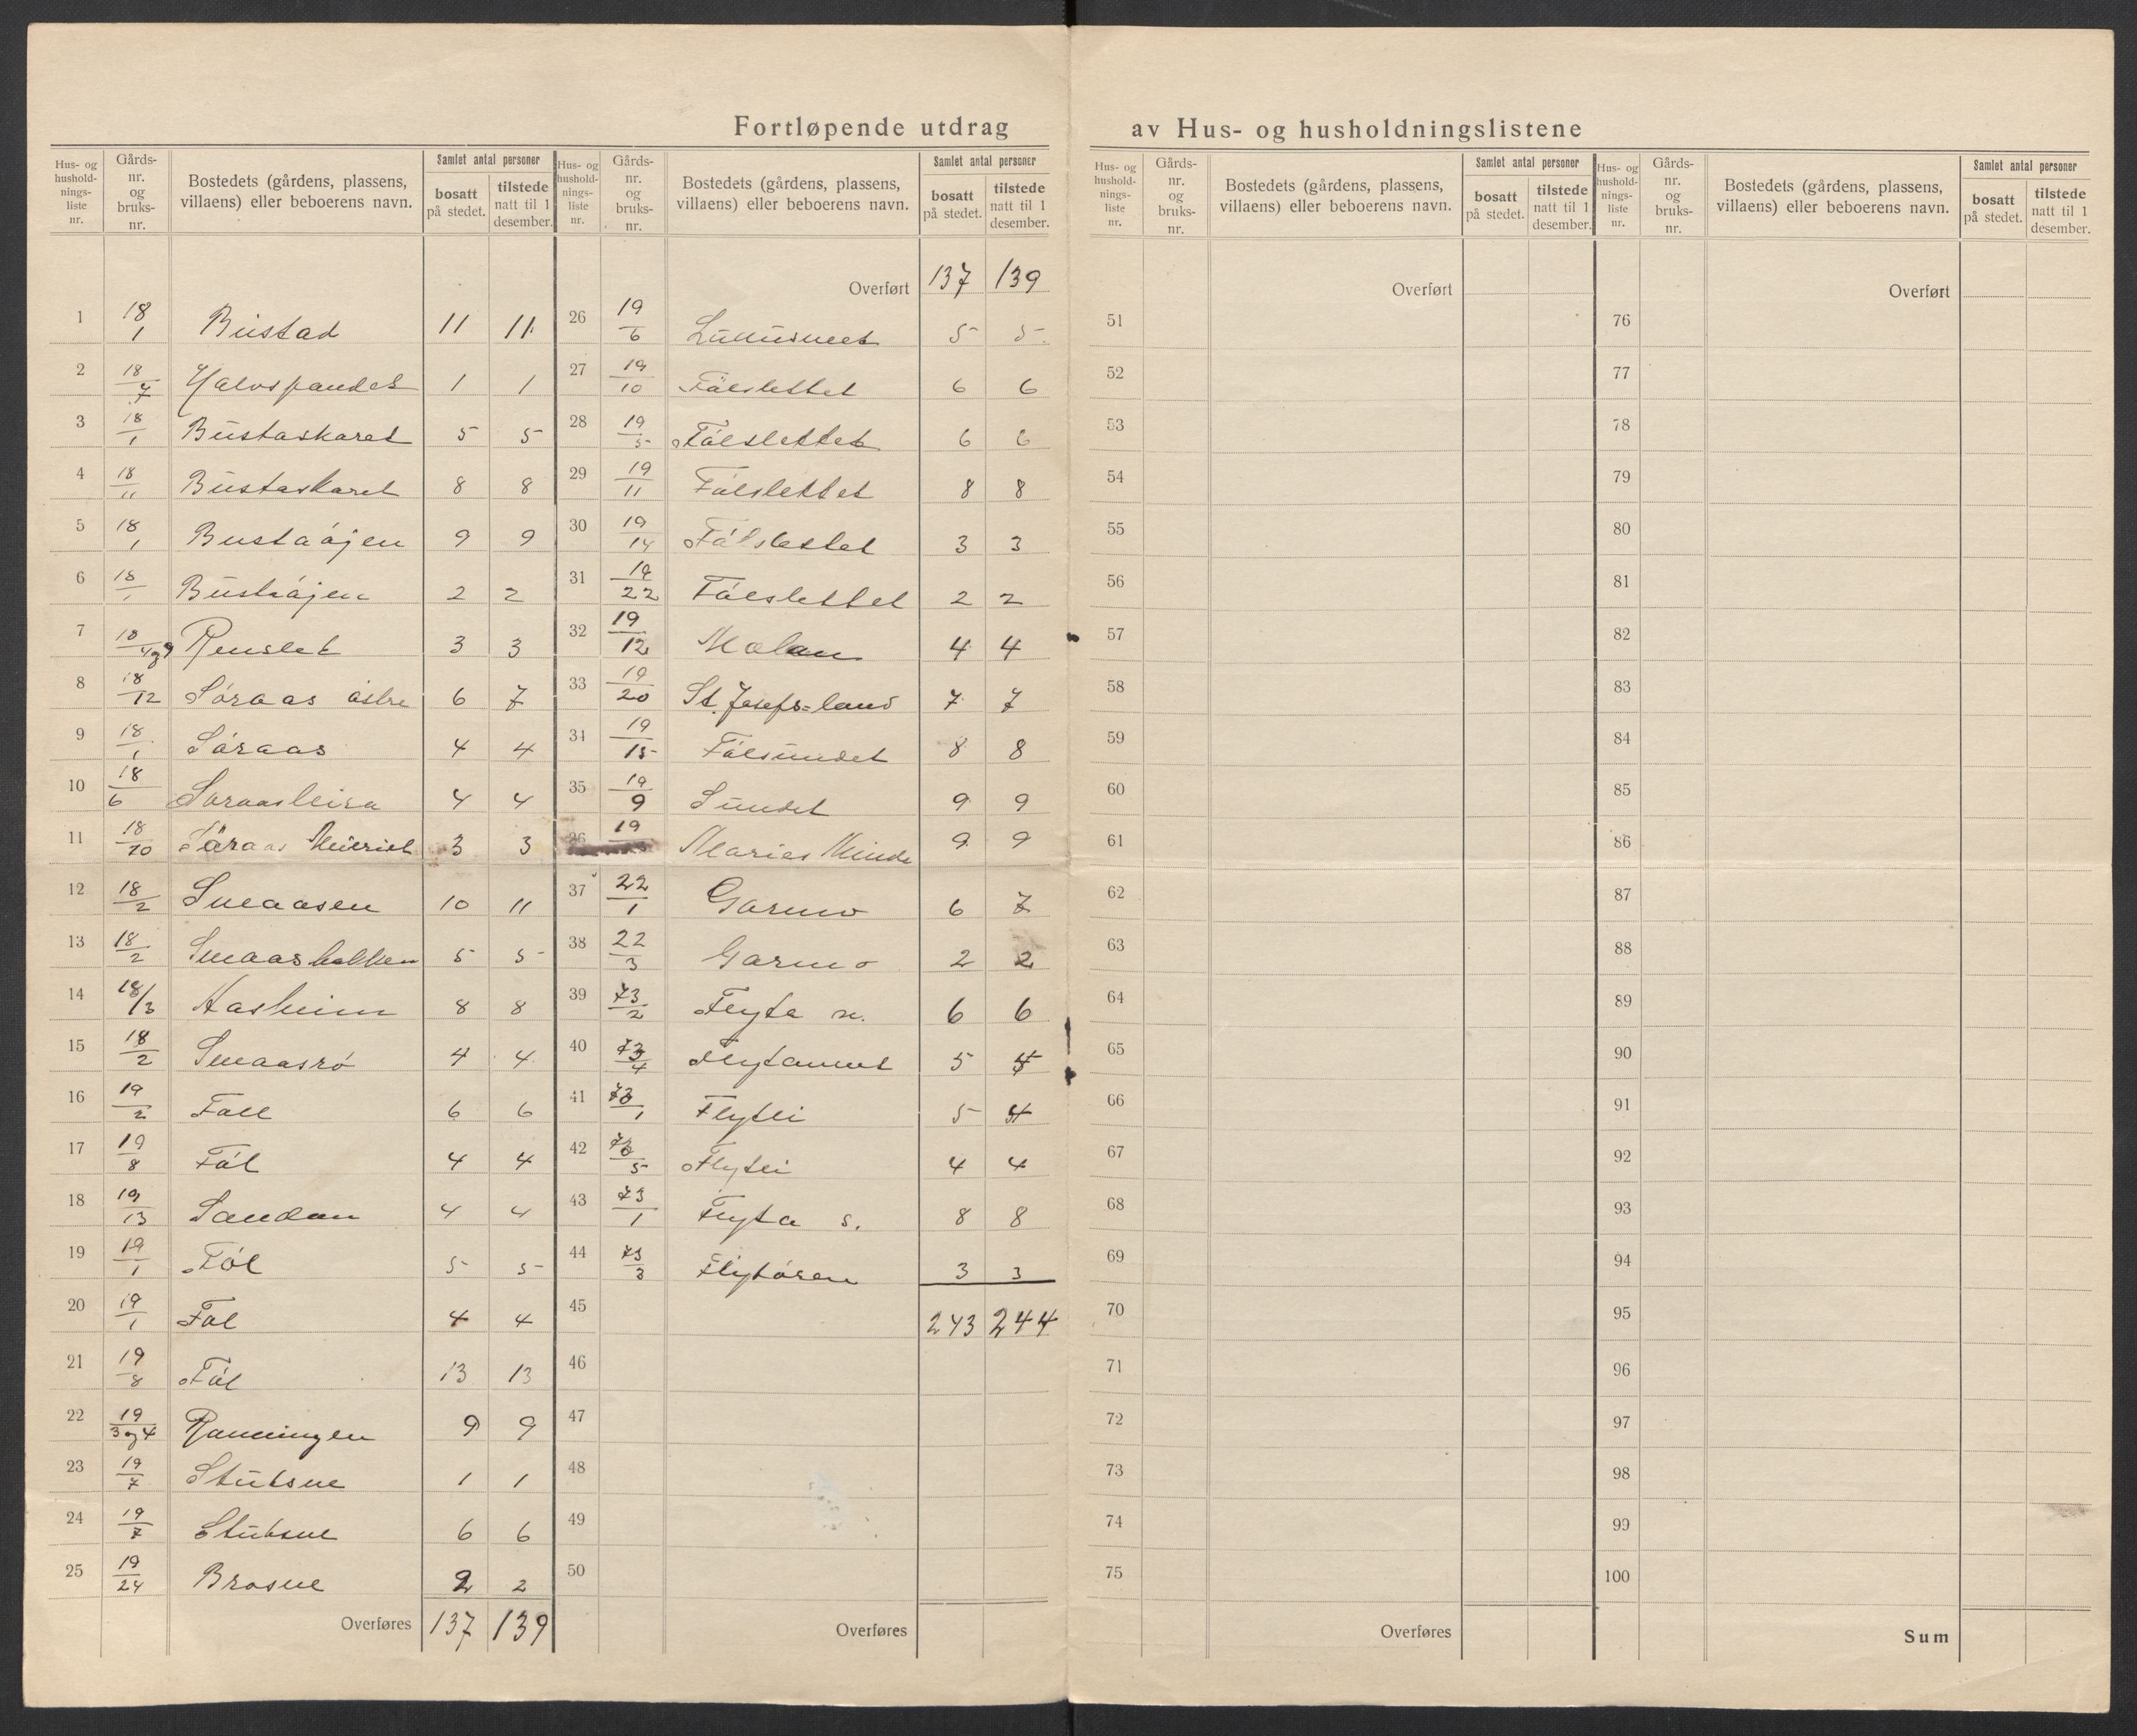 Fortløpende utdrag av Hus- og husholdningslistene
Hus- og hushold-nings-liste nr. Gårds-nr. og bruks-nr. Bostedets (gårdens, plassens, villaens) eller beboerens navn. Samlet antal personer bosatt på stedet. tilstede natt til 1 desember.
1 18/1 Bustad 11 11
2 18/7 1 1
3 18/1 Bustaskaret 5 5
4 18/11 Bustaskaret 8 8
5 18/1 Bustaöjen 9 9
6 18/1 Bustaöjen 2 2
7 18/4og9 Renslet 3 3
8 18/12 Söraas östre 6 7
9 18/1 Söraas 4 4
10 18/6 Soraasleira 4 4
11 18/10 Söraas Meieriet 3 3
12 18/2 Smaasen 10 11
13 18/2 Smaasbakken 5 5
14 18/3 Aasheim 8 8
15 18/2 Smaasrö 4 4
16 19/2 Fall 6 6
17 19/8 Föl 4 4
18 19/13 Sandan 4 4
19 19/1 Föl 5 5
20 19/1 Föl 4 4
21 19/8 Föl 13 13
22 19/3og4 Rönningen 9 9
23 19/7 Stubsne 1 1
24 19/7 Stubsne 6 6
25 19/24 Brosne 2 2
Overføres 137 139
Hus- og hushold-nings-liste nr. Gårds-nr. og bruks-nr. Bostedets (gårdens, plassens, villaens) eller beboerens navn. Samlet antal personer bosatt på stedet. tilstede natt til 1 desember.
Overført 137 139
26 19/6 5 5
27 19/10 Fölslettet 6 6
28 19/5 Fölslettet 6 6
29 19/11 Fölslettet 8 8
30 19/14 Fölslettet 3 3
31 19/22 Fölslettet 2 2
32 19/12 Molan 4 4
33 19/20 St. Josefs=land 7 7
34 19/15 Fölsundet 8 8
35 19/9 Sundet 9 9
36 19 Maries Minde 9 9
37 22/1 Garmo 6 7
38 22/3 Garmo 2 2
39 73/2 Flyta n. 6 6
40 73/4 Flytamet 5
41 73/1 Flytli 5 4
42 73/5 Flytli 4 4
43 73/1 Flyta s. 8 8
44 73/3 Flytåsen 3 3
45 243 244
46
47
48
49
50
Overføres
Hus- og hushold-nings-liste nr. Gårds-nr. og bruks-nr. Bostedets (gårdens, plassens, villaens) eller beboerens navn. Samlet antal personer bosatt på stedet. tilstede natt til 1 desember.
Overført
51
52
53
54
55
56
57
58
59
60
61
62
63
64
65
66
67
68
69
70
71
72
73
74
75
Overføres
Hus- og hushold-nings-liste nr. Gårds-nr. og bruks-nr. Bostedets (gårdens, plassens, villaens) eller beboerens navn. Samlet antal personer bosatt på stedet. tilstede natt til 1 desember.
Overført
76
77
78
79
80
81
82
83
84
85
86
87
88
89
90
91
92
93
94
95
96
97
98
99
100
Sum